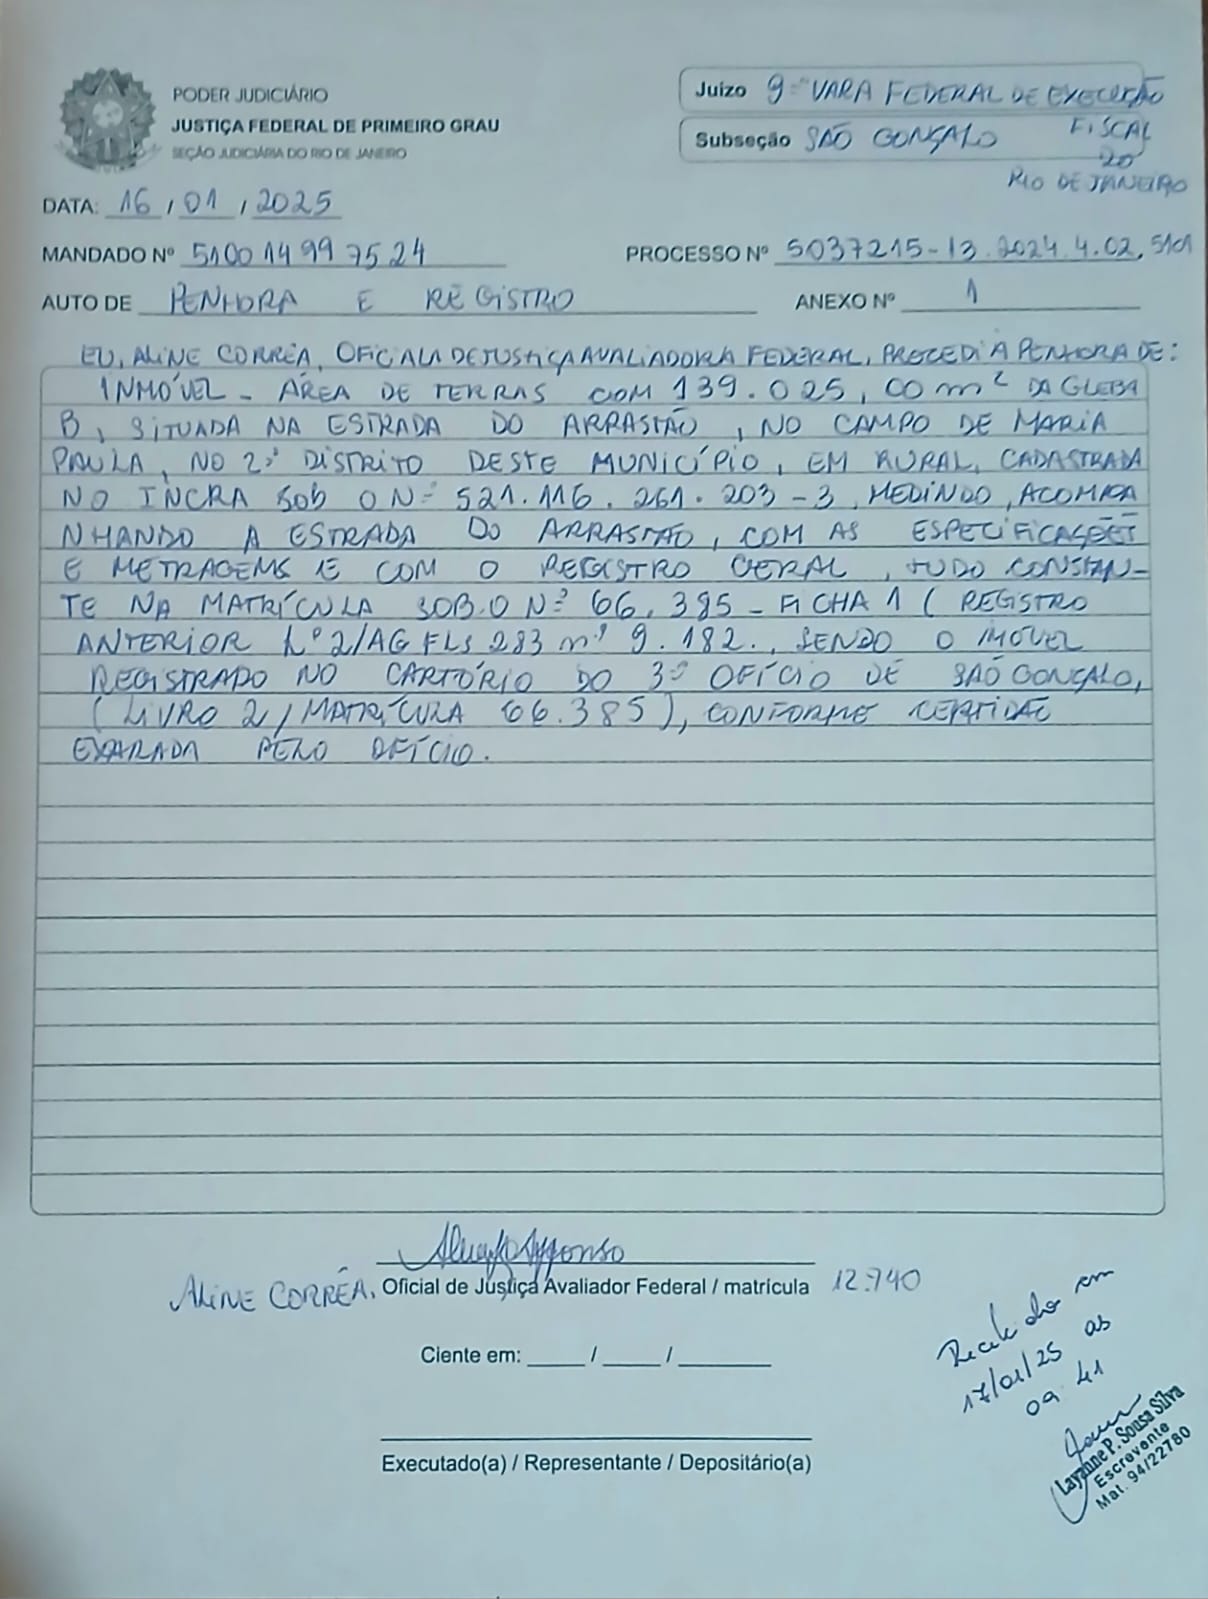 PODER JUDICIÁRIO
JUSTIÇA FEDERAL DE PRIMEIRO GRAU
SEÇÃO JUDICIÁRIA DO RIO DE JANEIRO
Juízo 9ª VARA FEDERAL DE EXECUÇÃO
FISCAL
Subseção SÃO GONÇALO
DO
RIO DE JANEIRO
DATA: 16 / 01 / 2025
MANDADO Nº 510014997524
PROCESSO Nº 5037215-13.2024.4.02.5101
AUTO DE PENHORA E REGISTRO
ANEXO Nº 1
EU, ALINE CORRÊA, OFICIALA DE JUSTIÇA AVALIADORA FEDERAL, PROCEDI A PENHORA DE:
INMÓVEL - ÁREA DE TERRAS COM 139.025,00 m² DA GLEBA
B, SITUADA NA ESTRADA DO ARRASTÃO, NO CAMPO DE MARIA
PAULA, NO 2º DISTRITO DESTE MUNICÍPIO, EM RURAL, CADASTRADA
NO INCRA SOB O Nº 521.116.261.203-3, MEDINDO, ACOMPA
NHANDO A ESTRADA DO ARRASTÃO, COM AS ESPECIFICAÇÕES
E METRAGENS E COM O REGISTRO GERAL, TUDO CONSTAN-
TE NA MATRÍCULA SOB.O Nº 66.385 - FICHA 1 ( REGISTRO
ANTERIOR Lº 2/AG FLS 283 nº 9.182., SENDO O IMÓVEL
REGISTRADO NO CARTÓRIO DO 3º OFÍCIO DE SÃO GONÇALO,
(LIVRO 2 / MATRÍCULA 66.385), CONFORME CERTIDÃO
EXARADA PELO OFÍCIO.
ALINE CORRÊA, Oficial de Justiça Avaliador Federal / matrícula 12.740
Ciente em: ____ / ____ / ______
Executado(a) / Representante / Depositário(a)
Recebido em
17/01/25 as
09:41
Layanne P. Sousa Silva
Escrevente
Mat. 94/22780